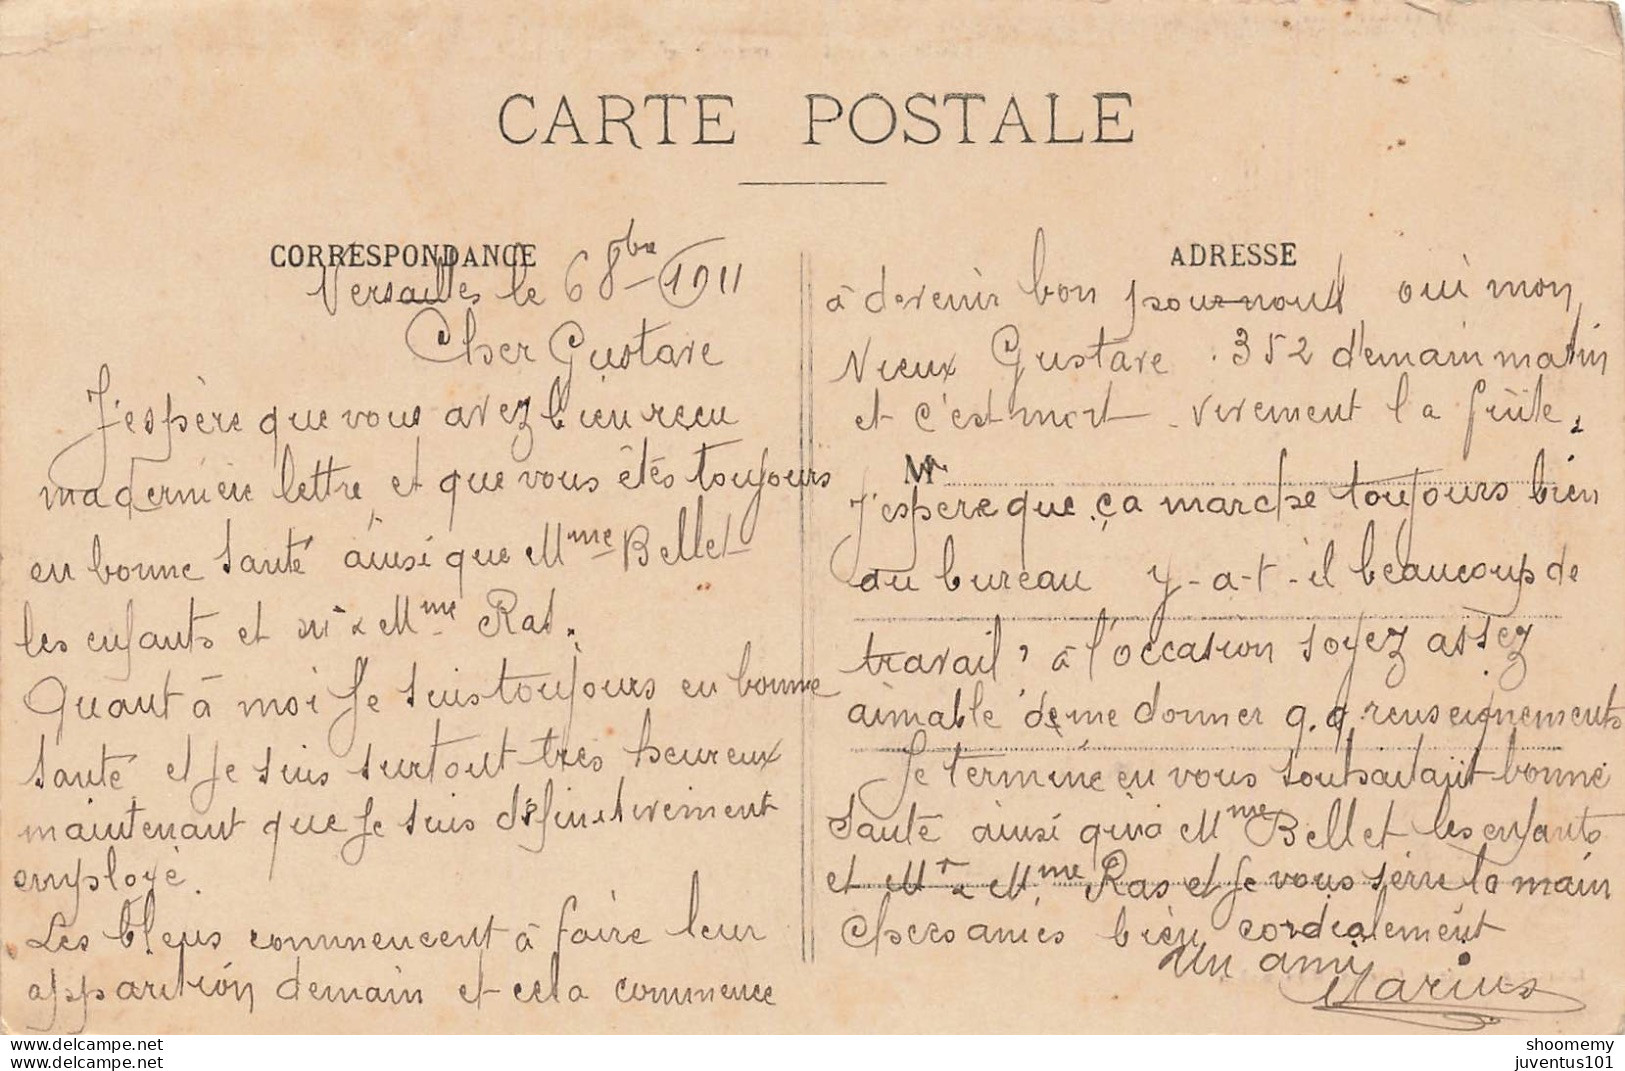 CARTE POSTALE
CORRESPONDANCE
Versailles le 6 8bre 1911
Cher Gustave
J'espère que vous avez bien reçu
ma dernière lettre et que vous êtes toujours
en bonne santé ainsi que Mme Bellet
les enfants et Mme Ras.
Quant à moi je suis toujours en bonne
santé et je suis surtout très heureux
maintenant que je suis définitivement
employé.
Les bleus commencent à faire leur
apparition demain et cela commence
ADRESSE
à devenir bon pour nous oui mon
vieux Gustave . 352 demain matin
et c'est mort . vivement la fuite.
M
J'espère que ça marche toujours bien
au bureau y-a-t-il beaucoup de
travail, à l'occasion soyez assez
aimable de me donner q.q. renseignements
Je termine en vous souhaitait bonne
santé ainsi qu'à Mme Bellet les enfants
et Mr & Mme Ras et je vous serre la main
Chers amis bien cordialement
Un ami
Marius
delcampe.net
shoomemy
juventus101